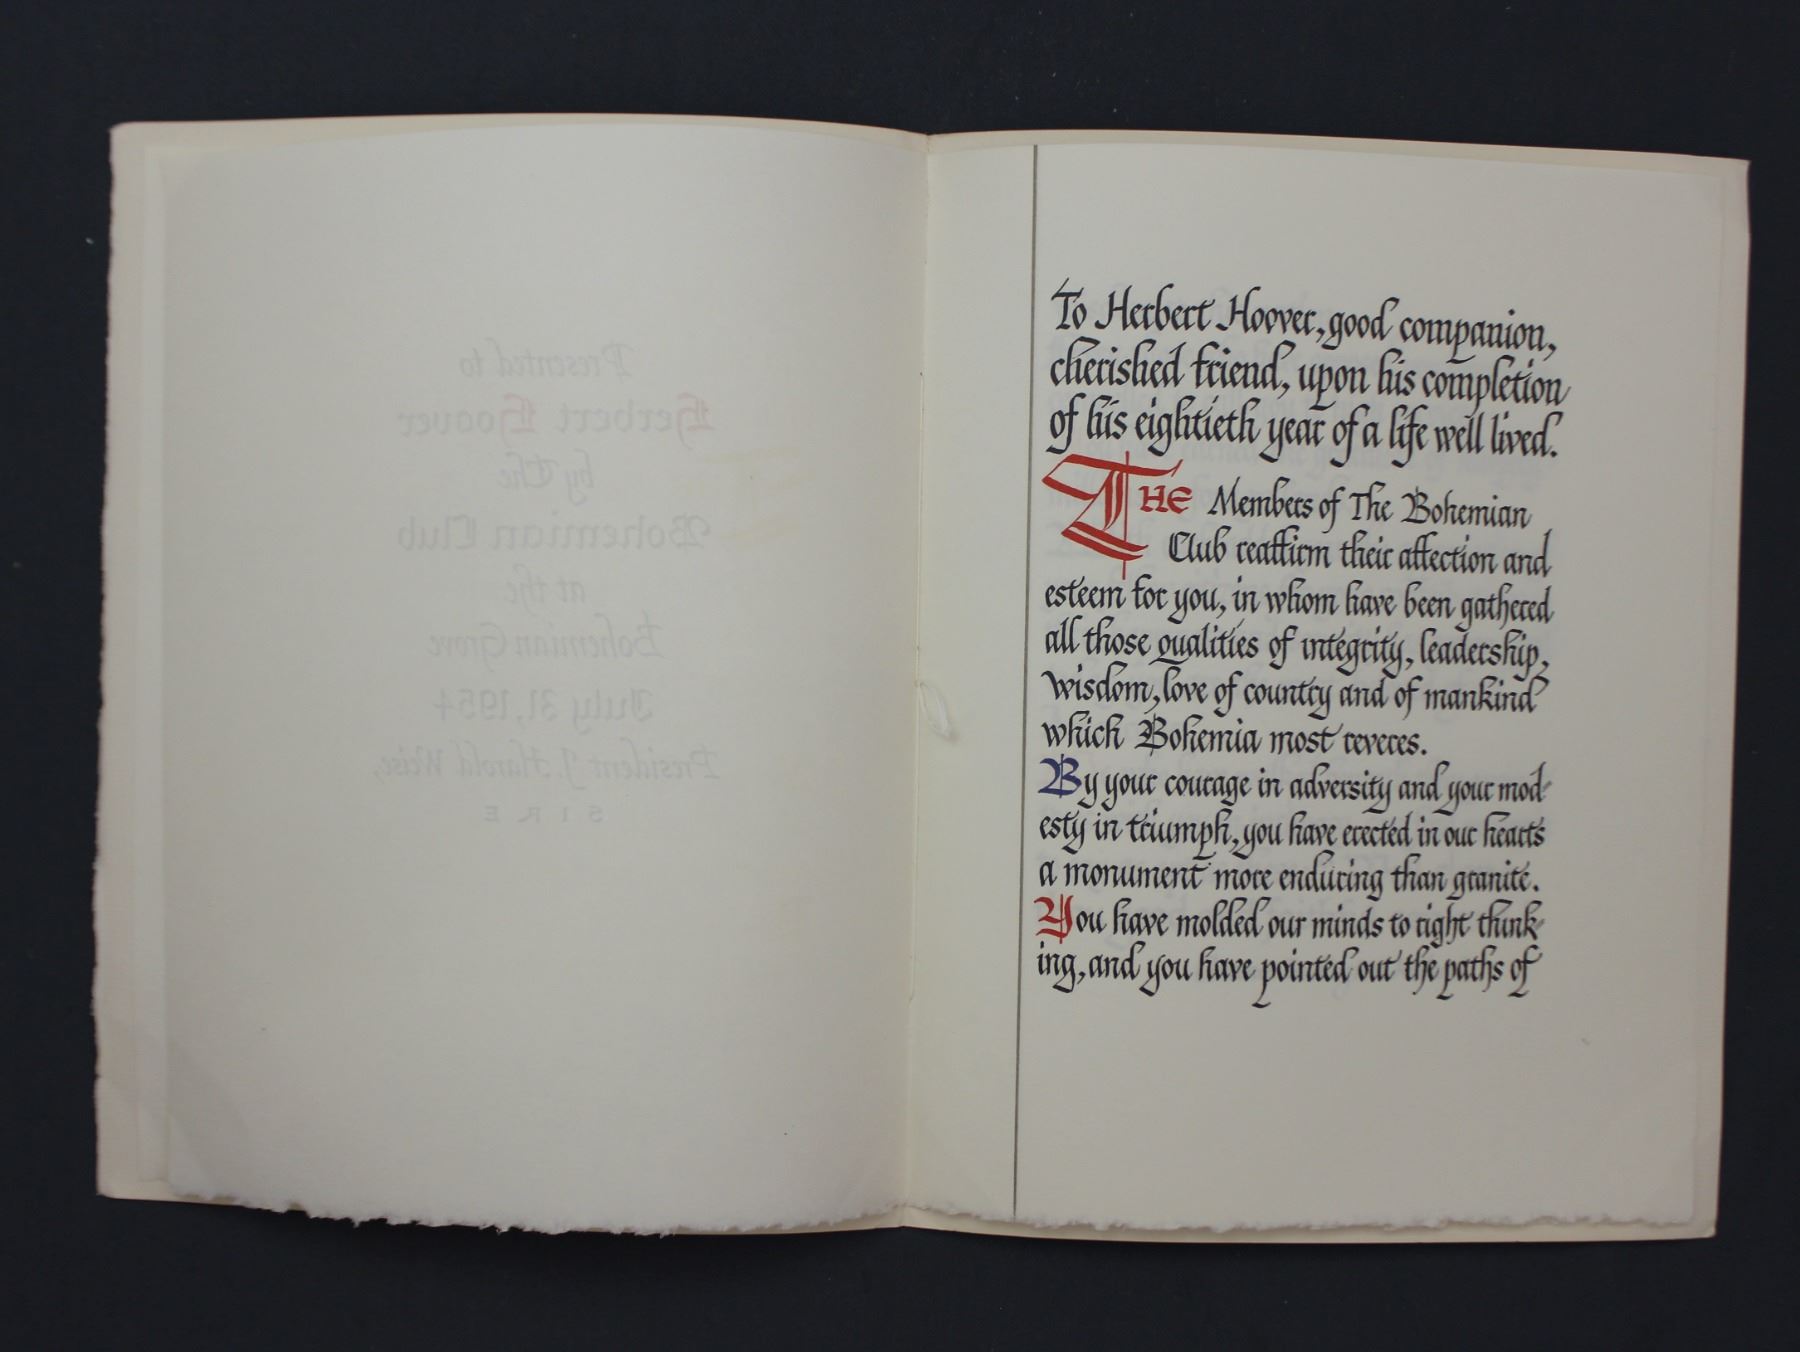 Presented to
Herbert Hoover
by The
Bohemian Club
at the
Bohemian Grove
July 31, 1954
President J. Harold Weise,
SIRE
To Herbert Hoover, good companion,
cherished friend, upon his completion
of his eightieth year of a life well lived.
THE Members of The Bohemian
Club reaffirm their affection and
esteem for you, in whom have been gathered
all those qualities of integrity, leadership,
wisdom, love of country and of mankind
which Bohemia most reveres.
By your courage in adversity and your mod-
esty in triumph, you have erected in our hearts
a monument more enduring than granite.
You have molded our minds to right think-
ing, and you have pointed out the paths of